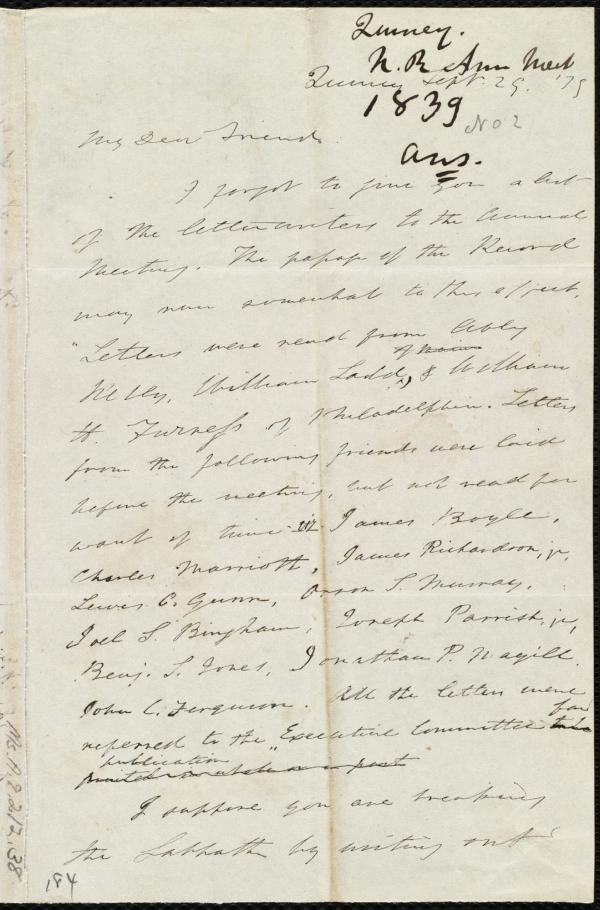 Quincy.
N. R. Ann Meet
Quincy Sept. 29. '39
1839
No 2
Ans.
My Dear Friend.
I forgot to give you a list
of the letter writers to the Annual
Meeting. The passage of the Record
may run somewhat to this effect.
"Letters were read from Abby
Kelly, William Ladd, & William
H. Furness of Philadelphia. Letters
from the following friends were laid
before the meeting, but not read for
want of time viz. James Boyle,
Charles Marriott, James Richardson, jr,
Lewis C. Gunn, Orson S. Murray,
Joel S. Bingham, Joseph Parrish, jr,
Benj. S. Jones, Jonathan P. Magill.
John C. Ferguson. All the letters were
referred to the Executive Committee for
publication
I suppose you are breaking
the Sabbath by writing out
184
Ms. A. 9. 2 v. 12. 38